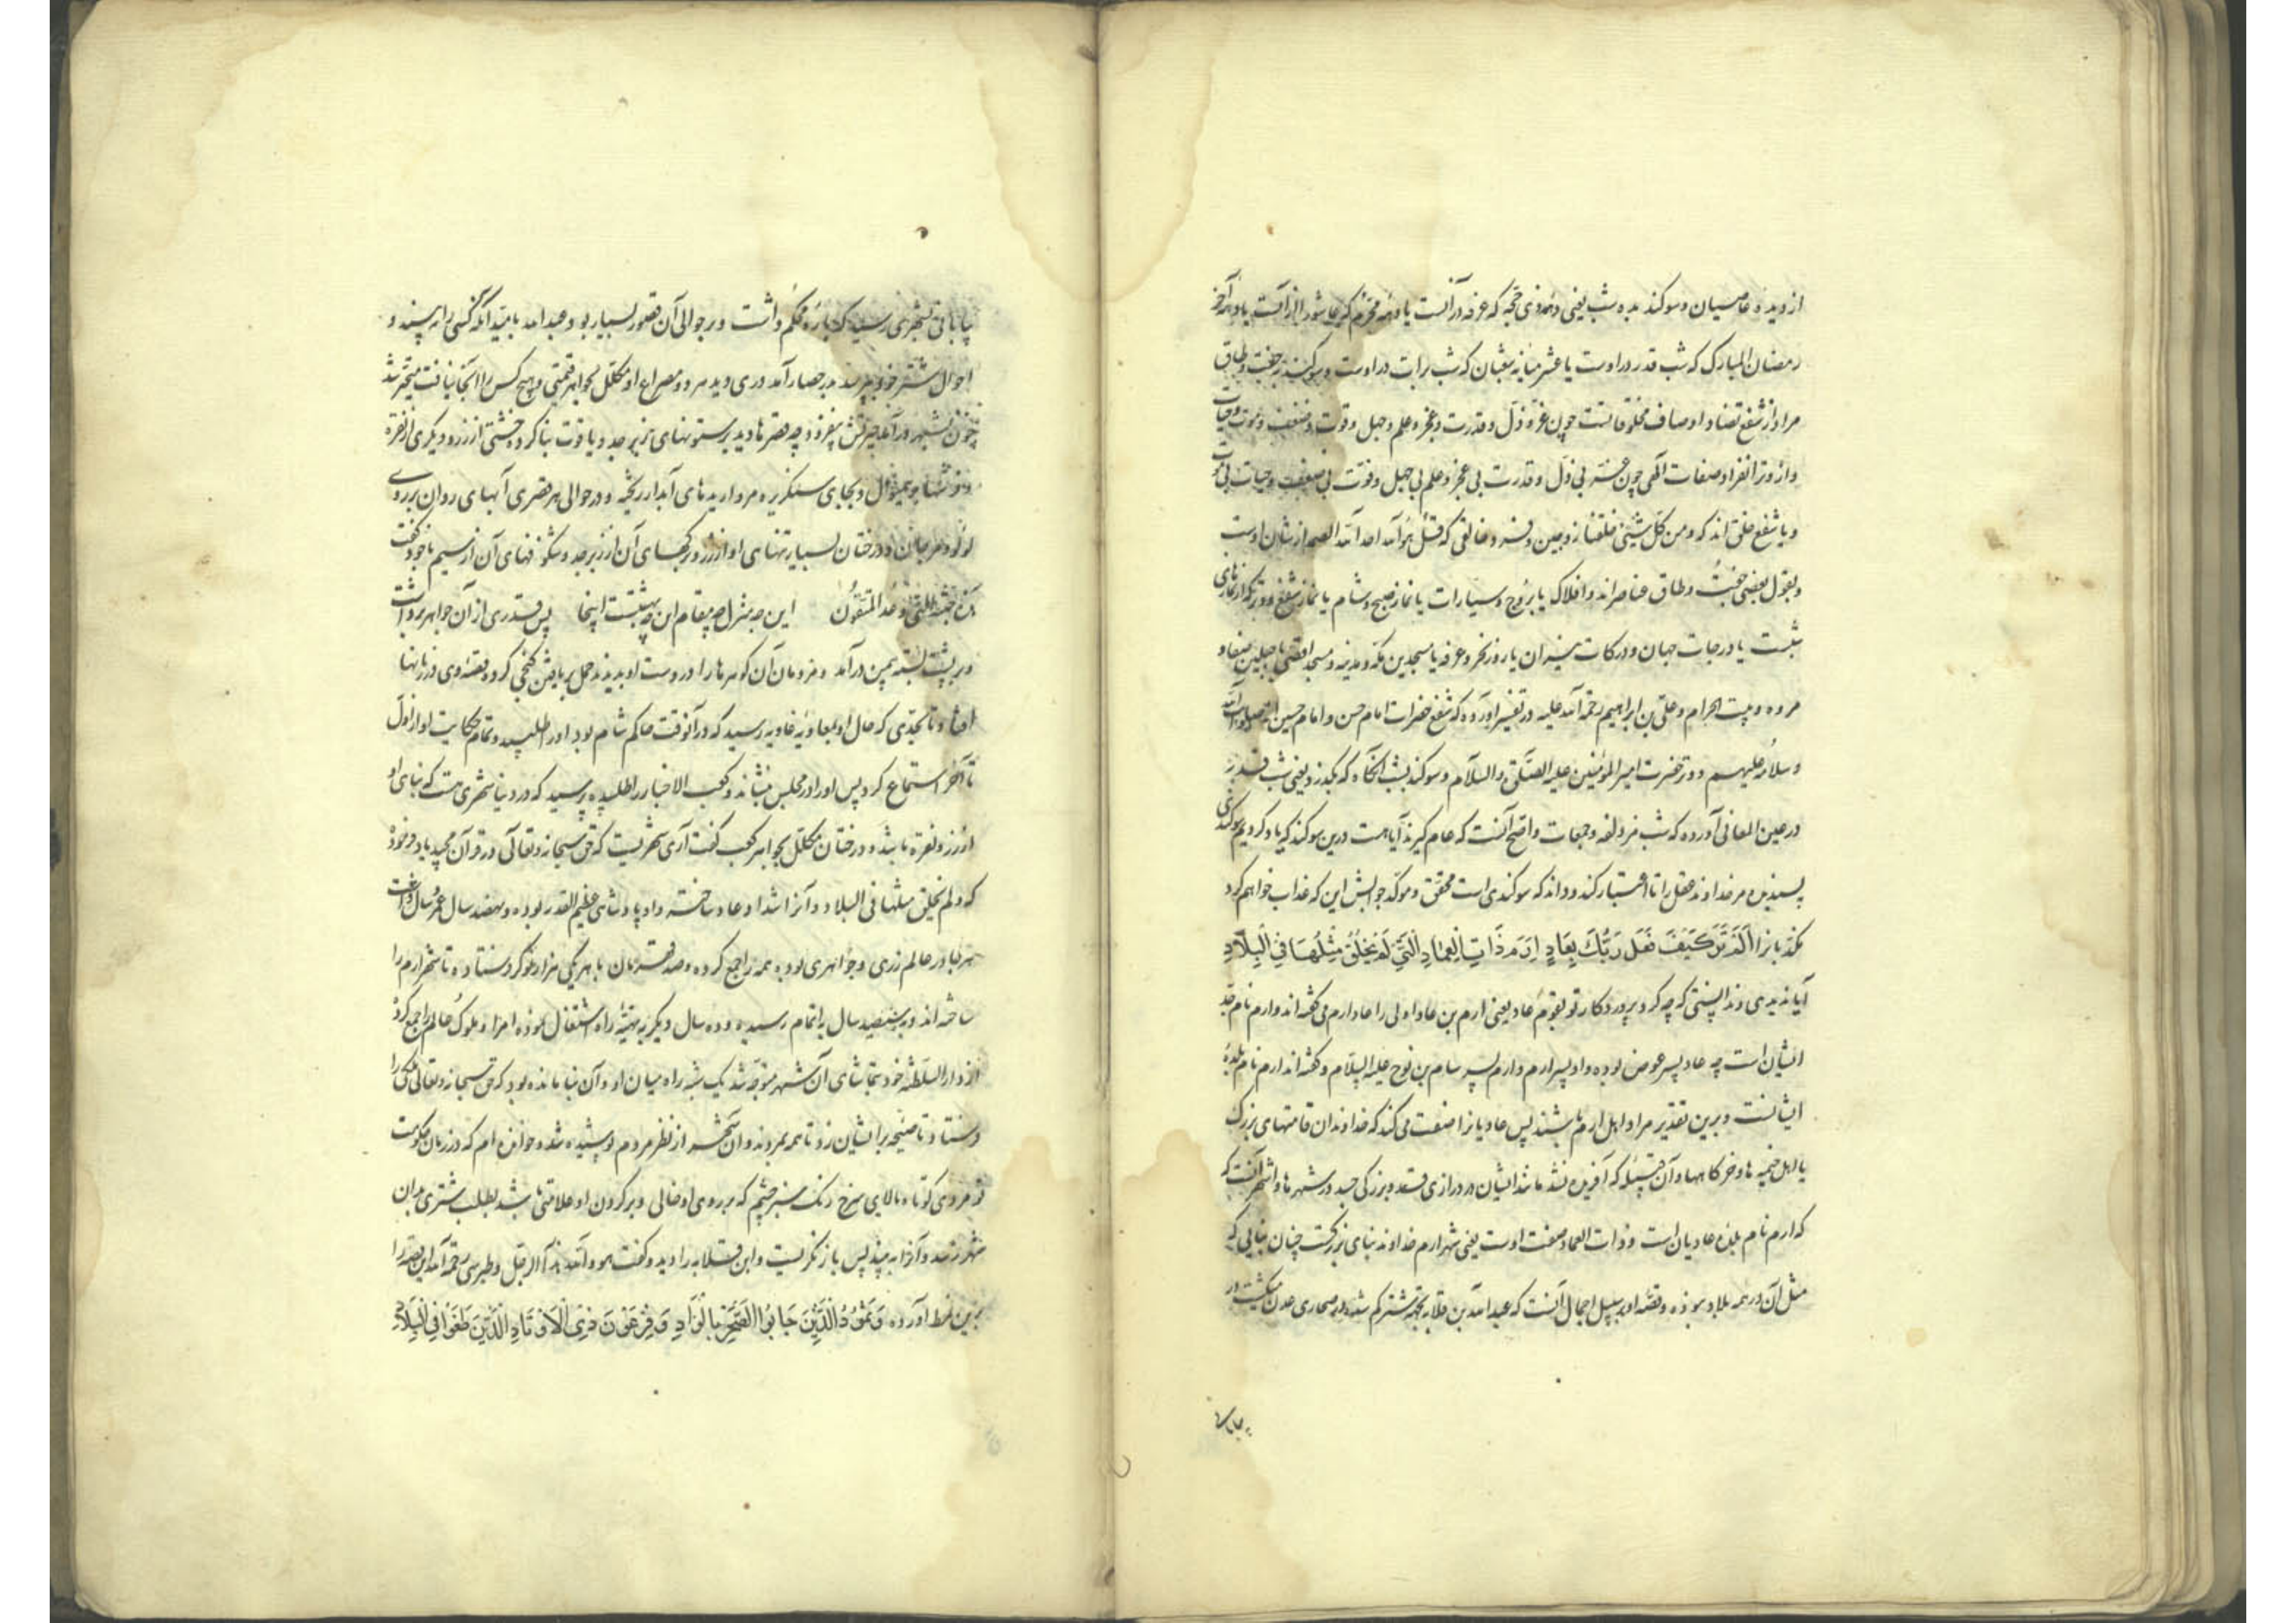 از دیده عاصیان و سوکند بده شب یعنی دهه ذی حجه که عرفه در آنست یا دهه محرم که عاشورا از آنست یا دهه آخر
رمضان المبارک که شب قدر در اوست یا عشر میانه شعبان که شب برات در اوست و سوکند بجفت و طاق
مراد از شفع تضاد اوصاف مخلوقاتست چون عز و ذل و قدرت و عجز و علم و جهل و قوت و ضعف و موت و حیات
و از وتر انفراد صفات آلهی چون عز بی ذل و قدرت بی عجز و علم بی جهل و قوت بی ضعف و حیات بی موت
و یا شفع خلق اند که و من کل شیئ خلقنا زوجین و تر و خالقی که قل هو الله احد الله الصمد از شان اوست
و بقول بعضی جفت و طاق عناصراند و افلاک یا بروج و سیارات یا نماز صبح و شام یا نماز شفع و وتر که از نمازهای
شبست یا درجات جهان و درکات نیران یا روز نحر و عرفه یا مسجدین مکه و مدینه و مسجد اقصی یا جبلین صفا و
مروه و بیت الحرام و علی بن ابراهیم رحمة الله علیه در تفسیر آورده که شفع حضرات امام حسن و امام حسین اند صلوات الله
و سلامه علیهم و وتر حضرت امیر المؤمنین علیه الصلوة و السلام و سوکند بشب آنکاه که بکذرد یعنی شب قدر
در عین المعانی آورده که شب مزدلفه و جمعات و اصح آنست که عام کیرند آیا هست درین سوکند که یاد کردیم سوکندی
پسندیده مر خداوند عقل را تا اعتبار کند و داند که سوکندی است محقق و موکد جوابش این که عذاب خواهم کرد
مکذبانرا اَلَمْ تَرَ كَيْفَ فَعَلَ رَبُّكَ بِعَادٍ اِرَمَ ذَاتِ الْعِمَادِ الَّتِي لَمْ يُخْلَقْ مِثْلُهَا فِي الْبِلَادِ
آیا ندیدی و ندانستی که چه کرد پروردکار تو بقوم عاد یعنی ارم بن عاد اولی را عاد ارم می کفته اند و ارم نام جد
ایشان است چه عاد پسر عوض بوده و او پسر ارم و ارم پسر سام بن نوح علیه السلام و کفته اند ارم نام بلدهٔ
ایشانست و برین تقدیر مراد اهل ارم باشند پس عادیانرا صفت می کند که خداوندان قامتهای بزرک
یا اهل خیمه ها و خرکاهها و آن قبیله که آفریده نشد مانند ایشان در درازی قد و بزرکی جسد در شهرها و اشهر آنست که
که ارم نام بلدهٔ عادیان است و ذات العماد صفت اوست یعنی شهر ارم خداوند بنای بزرکست چنان بنایی که
مثل آن در همه بلاد نبوده و قصه او بر سبیل اجمال آنست که عبد الله بن قلابه بجهة شتر کم شده در صحاری عدن میکشت در
بیابان
بیابانی بشهری رسید که باره محکم داشت و بر حوالی آن قصور بسیار بود عبد الله بامید آنکه کسی را به بیند و
احوال شتر خود بپرسد بدر حصار آمد دری دید هر دو مصراع او مکلل بجواهر قیمتی و هیچ کس را آنجا نیافت متحیر شد
چون بشهر درآمد حیرتش بیفزود چه قصرها دید بر ستونهای زبرجد و یاقوت بنا کرده خشتی از زر و دیکری از نقره
و فرشها بر همین منوال و بجای سنکریزه مرواریدهای آبدار ریخته و در حوالی هر قصری آبهای روان بر روی
لؤلؤ و مرجان و درختان بسیار تنهای او از زر و برکهای آن از زبرجد و شکوفهای آن از سیم با خود کفت
هذه الجنة التی وعد المتقون این چه منزل چه مقام این چه بهشتست اینجا پس قدری از آن جواهر برداشت
و بر پشت بسته بیمن درآمد و مردمان آن کوهرها را در دست او بدیدند حمل بر یافتن کنجی کرد و قصه وی در زبانها
افتاد تا بحدی که حال او بمعاویه غاویه رسید که در آنوقت حاکم شام بود او را طلبید و تمام حکایت او از اول
تا آخر استماع کرد پس او را در مجلس بنشاند و کعب الاخبار را طلبیده پرسید که در دنیا شهری هست که بنای او
از زر و نقره باشد و درختان مکلل بجواهر کعب کفت آری شهریست که حق سبحانه و تعالی در قرآن مجید یاد فرمود
که و لم یخلق مثلها فی البلاد و آنرا شداد عاد ساخته و او پادشاهی عظیم القدر بوده و نهصد سال عمر داشت
هر جا در عالم زری و جواهری بود به همه را جمع کرده و صد قهرمان با هر یکی هزار نوکر فرستاده تا شهر ارم را
ساخته اند و به سیصد سال به اتمام رسیده و ده سال دیکر به تهیه راه اشتغال نموده امرا و ملوک عالم را جمع کرد
از دار السلطنه خود بتماشای آن شهر متوجه شد یک شبه راه میان او و آن بنا مانده بود که حق سبحانه و تعالی ملکی را
فرستاد تا صیحه بر ایشان زد تا همه بمردند و آن شهر از نظر مردم پوشیده شد و خوانده ام که در زمان حکومت
تو مردی کوتاه بالای سرخ رنک سبز چشم که بر روی او خالی و بر کردن او علامتی باشد بطلب شتری بدان
شهر رسد و آنرا به بیند پس باز نکریست و ابن قلابه را دید و کفت هو و الله هذا الرجل و طبرسی رحمة الله این قصه را
برین نمط آورده وَثَمُودَ الَّذِينَ جَابُوا الصَّخْرَ بِالْوَادِ وَفِرْعَوْنَ ذِي الْاَوْتَادِ الَّذِينَ طَغَوْا فِي الْبِلَادِ